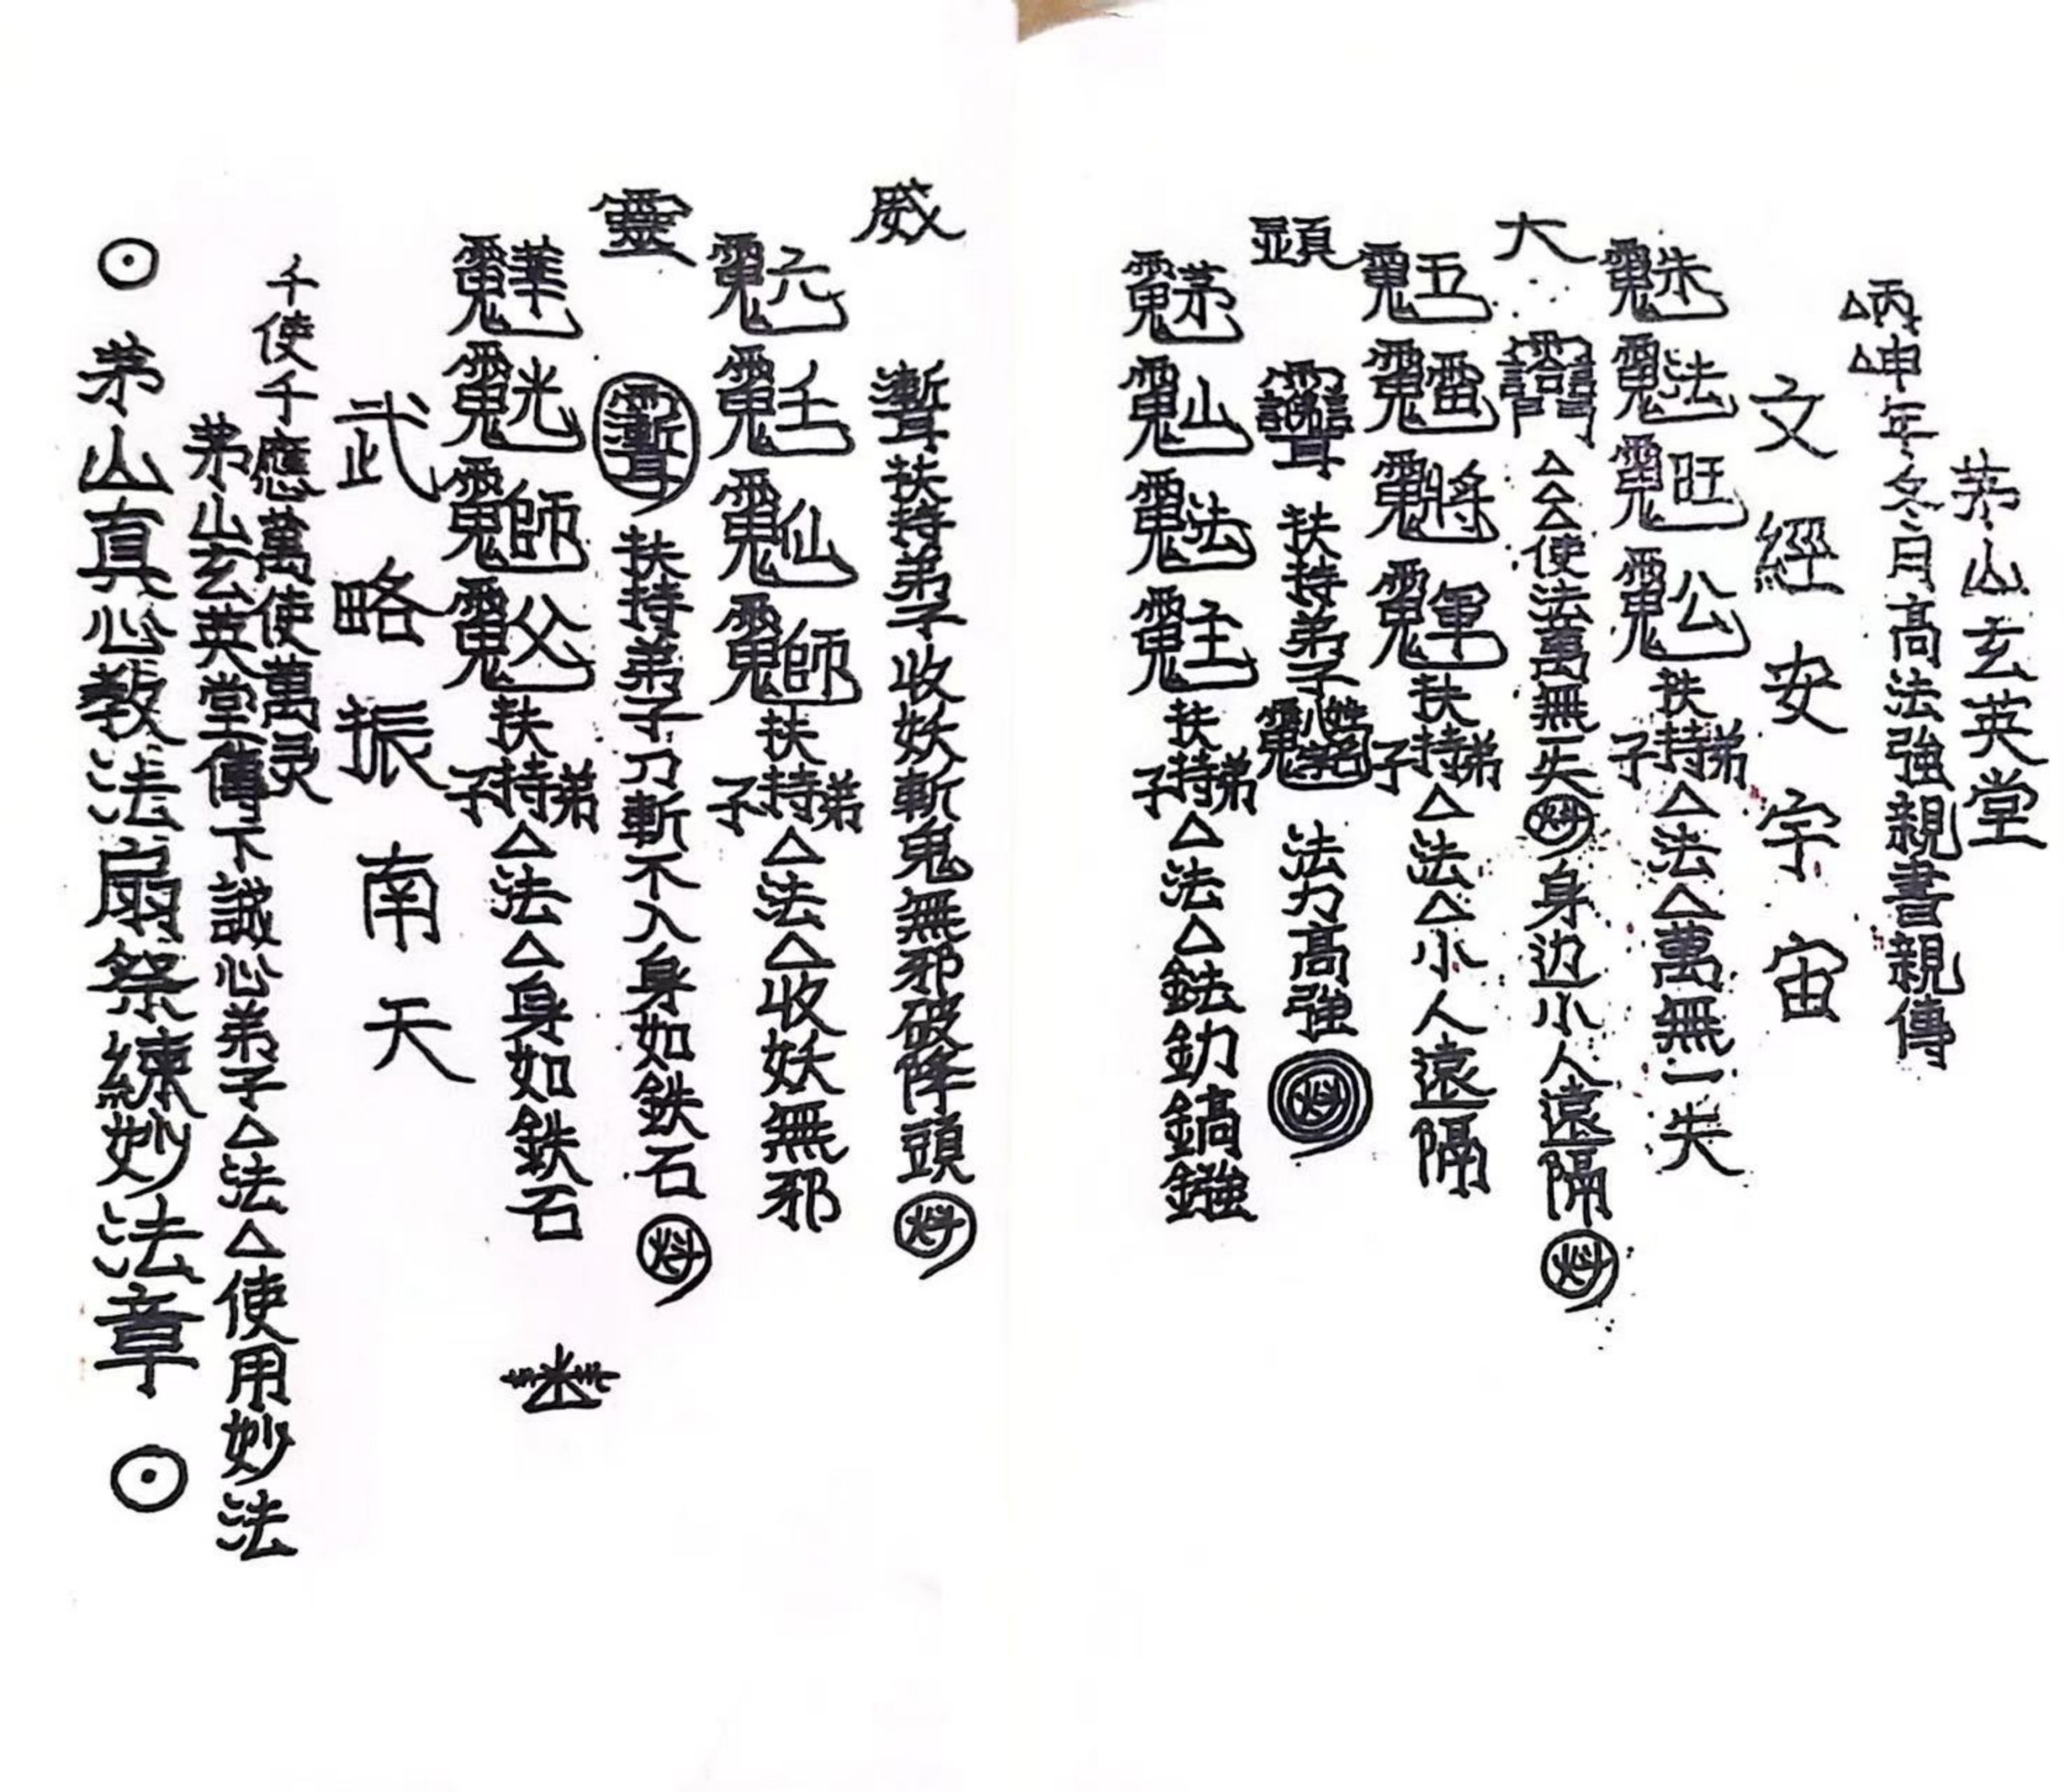 茅山玄英堂
丙申年冬月高法強親書親傳
文經安宇宙
朱法旺公扶持弟子△法△萬無一失
大
△△△使法萬無一失 身边小人遠隔
五雷將軍扶持弟子△法△小人遠隔
顕
扶持弟子 姓名 法力高強
茅山法主扶持弟子△法△鉣釛鎬鏹
威
扶持弟子收妖斬鬼無邪破降頭
六壬仙師扶持弟子△法△收妖無邪
靈
扶持弟子刀斬不入身如鉄石
華光師父扶持弟子△法△身如鉄石
武略振南天
千使千應萬使萬灵
茅山玄英堂傳下誠心弟子△法△使用妙法
⊙茅山真心教法扇祭練妙法章⊙